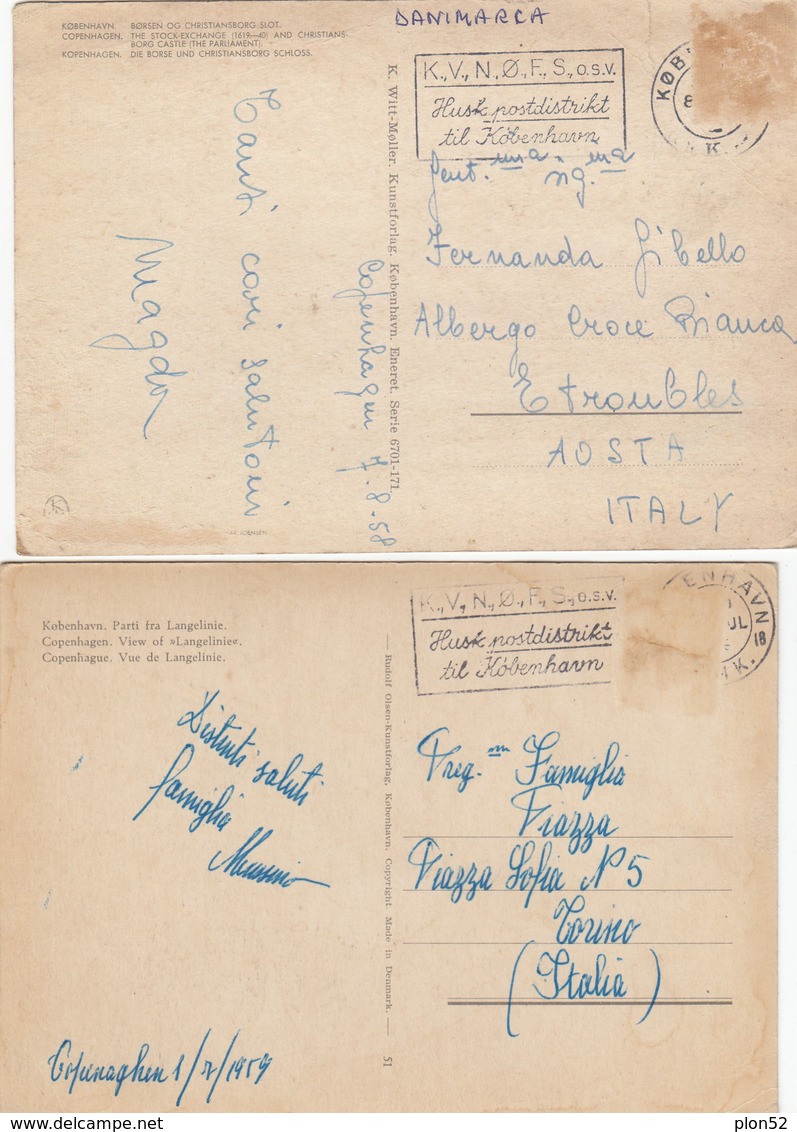 KØBENHAVN. BØRSEN OG CHRISTIANSBORG SLOT.
COPENHAGEN. THE STOCK-EXCHANGE (1619—40) AND CHRISTIANS-
BORG CASTLE (THE PARLIAMENT).
KOPENHAGEN. DIE BÖRSE UND CHRISTIANSBORG SCHLOSS.
DANIMARCA
K., V., N., Ø., F., S., o.s.v.
Husk postdistrikt
til København
KØB
8
K.
Tanti cari saluti
Magda
Copenhagen 7.8.58
K. Witt-Møller. Kunstforlag. København. Eneret. Serie 6701-171.
Gent.ma
Fernanda Gibello
Albergo Croce Bianca
Etroubles
AOSTA
ITALY
København. Parti fra Langelinie.
Copenhagen. View of »Langelinie«.
Copenhague. Vue de Langelinie.
K., V., N., Ø., F., S., o.s.v.
Husk postdistrikt
til København
ENHAVN
UL
18
K.
Distinti saluti
famiglia
— Rudolf Olsen-Kunstforlag, København. Copyright. Made in Denmark. — 51
Preg.ma Famiglia
Piazza
Piazza Sofia N 5
Torino
(Italia)
Copenaghen 1/7/1959
plon52